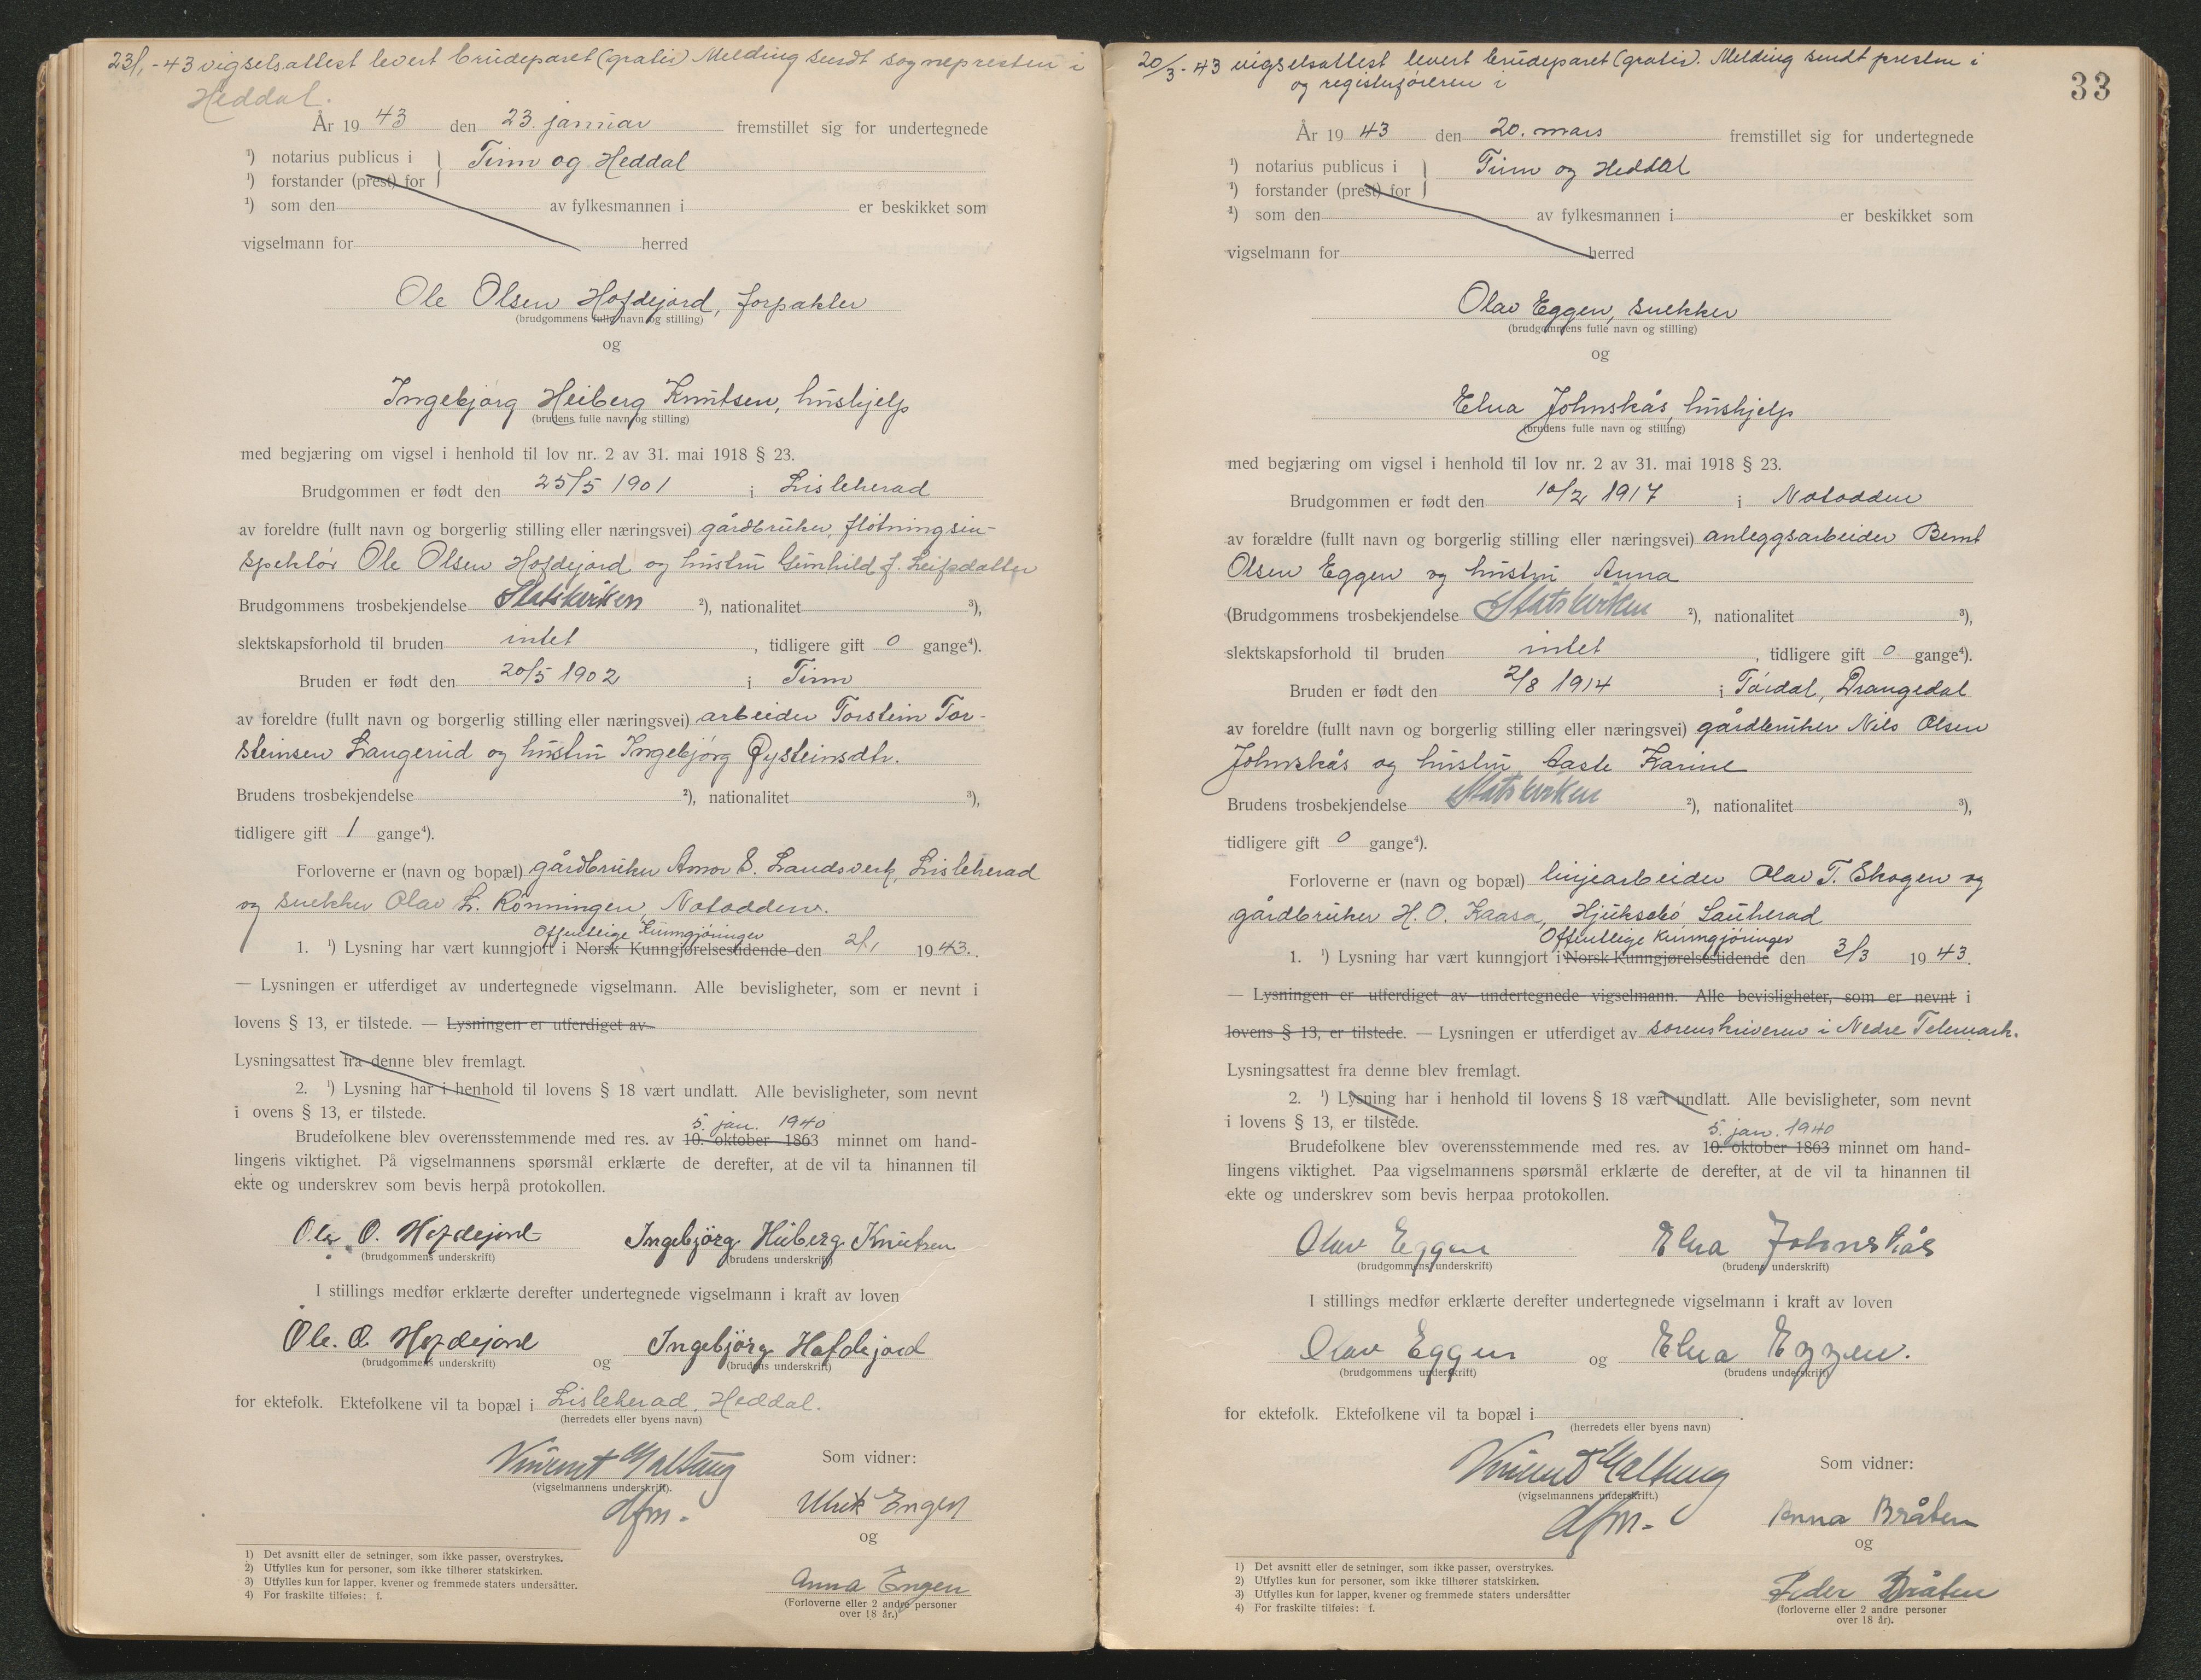 23/1-43 vigselsattest levert brudeparet (gratis) Melding sendt sognepresten i
Heddal.
År 1943 den 23. januar fremstillet sig for undertegnede
¹) notarius publicus i } Tinn og Heddal
¹) forstander (prest) for
¹) som den av fylkesmannen i er beskikket som
vigselmann for herred
Ole Olsen Hofdejord, forpakter
(brudgommens fulle navn og stilling)
og
Ingebjørg Heiberg Knutsen, hushjelp
(brudens fulle navn og stilling)
med begjæring om vigsel i henhold til lov nr. 2 av 31. mai 1918 § 23.
Brudgommen er født den 25/5 1901 i Lisleherad
av foreldre (fullt navn og borgerlig stilling eller næringsvei) gårdbruker, fløtningsin-
spektør Ole Olsen Hofdejord og hustru Gunhild f. Leifsdatter
Brudgommens trosbekjendelse Statskirken ²), nationalitet ³),
slektskapsforhold til bruden intet , tidligere gift 0 gange⁴).
Bruden er født den 20/5 1902 i Tinn
av foreldre (fullt navn og borgerlig stilling eller næringsvei) arbeider Torstein Tor-
steinsen Langerud og hustru Ingebjørg Øysteinsdtr.
Brudens trosbekjendelse ²), nationalitet ³),
tidligere gift 1 gange⁴).
Forloverne er (navn og bopæl) gårdbruker Amor S. Landsverk, Lisleherad
og snekker Olav L. Rønningen, Notodden.
Offentlige Kunngjøringer
1. ¹) Lysning har vært kunngjort i Norsk Kunngjørelsestidende den 2/1 1943.
— Lysningen er utferdiget av undertegnede vigselmann. Alle bevisligheter, som er nevnt i
lovens § 13, er tilstede. — Lysningen er utferdiget av
Lysningsattest fra denne blev fremlagt.
2. ¹) Lysning har i henhold til lovens § 18 vært undlatt. Alle bevisligheter, som nevnt
i ovens § 13, er tilstede.
5. jan. 1940
Brudefolkene blev overensstemmende med res. av 10. oktober 1863 minnet om hand-
lingens viktighet. På vigselmannens spørsmål erklærte de derefter, at de vil ta hinannen til
ekte og underskrev som bevis herpå protokollen.
Ole O. Hofdejord Ingebjørg Hiberg Knutsen
(brudgommens underskrift) (brudens underskrift)
I stillings medfør erklærte derefter undertegnede vigselmann i kraft av loven
Ole. O. Hofdejord og Ingebjørg Hofdejord
(brudgommens underskrift) (brudens underskrift)
for ektefolk. Ektefolkene vil ta bopæl i Lisleherad, Heddal.
(herredets eller byens navn)
Vincent Galtung Som vidner:
(vigselmannens underskrift).
dfm. Ulrik Engen
og
Anna Engen
(Forloverne eller 2 andre personer
over 18 år.)
1) Det avsnitt eller de setninger, som ikke passer, overstrykes.
2) Utfylles kun for personer, som ikke tilhører statskirken.
3) Utfylles kun for lapper, kvener og fremmede staters undersåtter.
4) For fraskilte tilføies: f.
20/3-43 vigselsattest levert brudeparet (gratis). Melding sendt presten i
og registerføreren i
33
År 1943 den 20. mars fremstillet sig for undertegnede
¹) notarius publicus i } Tinn og Heddal
¹) forstander (prest) for
¹) som den av fylkesmannen i er beskikket som
vigselmann for herred
Olav Eggen, snekker
(brudgommens fulle navn og stilling)
og
Elna Johnskås, hushjelp
(brudens fulle navn og stilling)
med begjæring om vigsel i henhold til lov nr. 2 av 31. mai 1918 § 23.
Brudgommen er født den 10/2 1917 i Notodden
av forældre (fullt navn og borgerlig stilling eller næringsvei) anleggsarbeider Bernt
Olsen Eggen og hustru Anna
(Brudgommens trosbekjendelse Statskirken ²), nationalitet ³),
slektskapsforhold til bruden intet , tidligere gift 0 gange⁴).
Bruden er født den 2/8 1914 i Tørdal, Drangedal
av foreldre (fullt navn og borgerlig stilling eller næringsvei) gårdbruker Nils Olsen
Johnskås og hustru Aaste Karine
Brudens trosbekjendelse Statskirken ²), nationalitet ³),
tidligere gift 0 gange⁴).
Forloverne er (navn og bopæl) linjearbeider Olav T. Skogen og
gårdbruker H. O. Kaasa, Hjuksebø Sauherad
Offentlige Kunngjøringer
1. ¹) Lysning har vært kunngjort i Norsk Kunngjørelsestidende den 3/3 1943.
— Lysningen er utferdiget av undertegnede vigselmann. Alle bevisligheter, som er nevnt i
lovens § 13, er tilstede. — Lysningen er utferdiget av sorenskriveren i Nedre Telemark.
Lysningsattest fra denne blev fremlagt.
2. ¹) Lysning har i henhold til lovens § 18 vært undlatt. Alle bevisligheter, som nevnt
i lovens § 13, er tilstede.
5. jan. 1940
Brudefolkene blev overensstemmende med res. av 10. oktober 1863 minnet om hand-
lingens viktighet. Paa vigselmannens spørsmål erklærte de derefter, at de vil ta hinannen til
ekte og underskrev som bevis herpaa protokollen.
Olav Eggen Elna Johnskås
(brudgommens underskrift) (brudens underskrift)
I stillings medfør erklærte derefter undertegnede vigselmann i kraft av loven
Olav Eggen og Elna Eggen.
(brudgommens underskrift) (brudens underskrift)
for ektefolk. Ektefolkene vil ta bopæl i .
(herredets eller byens navn)
Vincent Galtung Som vidner:
(vigselmannens underskrift.)
dfm. Anna Bråten
og
Peder Bråten
(forloverne eller 2 andre personer
over 18 år).
1) Det avsnitt eller de setninger, som ikke passer, overstrykes.
2) Utfylles kun for personer, som ikke tilhører statskirken.
3) Utfylles kun for lapper, kvener og fremmede staters undersåtter
4) For fraskilte tilføies: f.